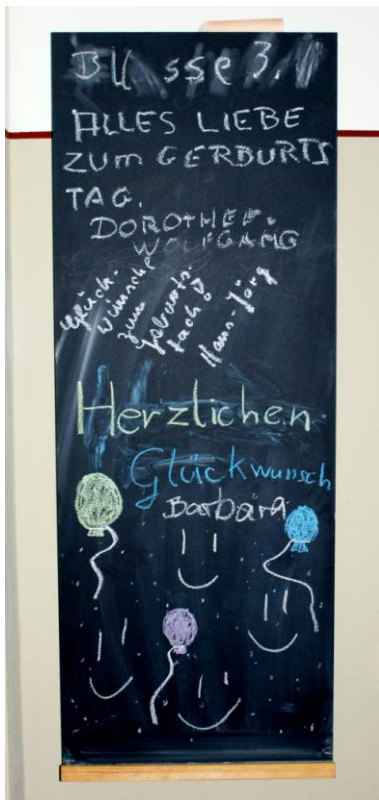 BU sse 3.
ALLES LIEBE
ZUM GERBURTS
TAG.
DOROTHEE.
WOLFGAMG
Glück-
wünsche
zum
Geburts-
tach
Hans-Jörg
Herzlichen
Glückwunsch
Barbara